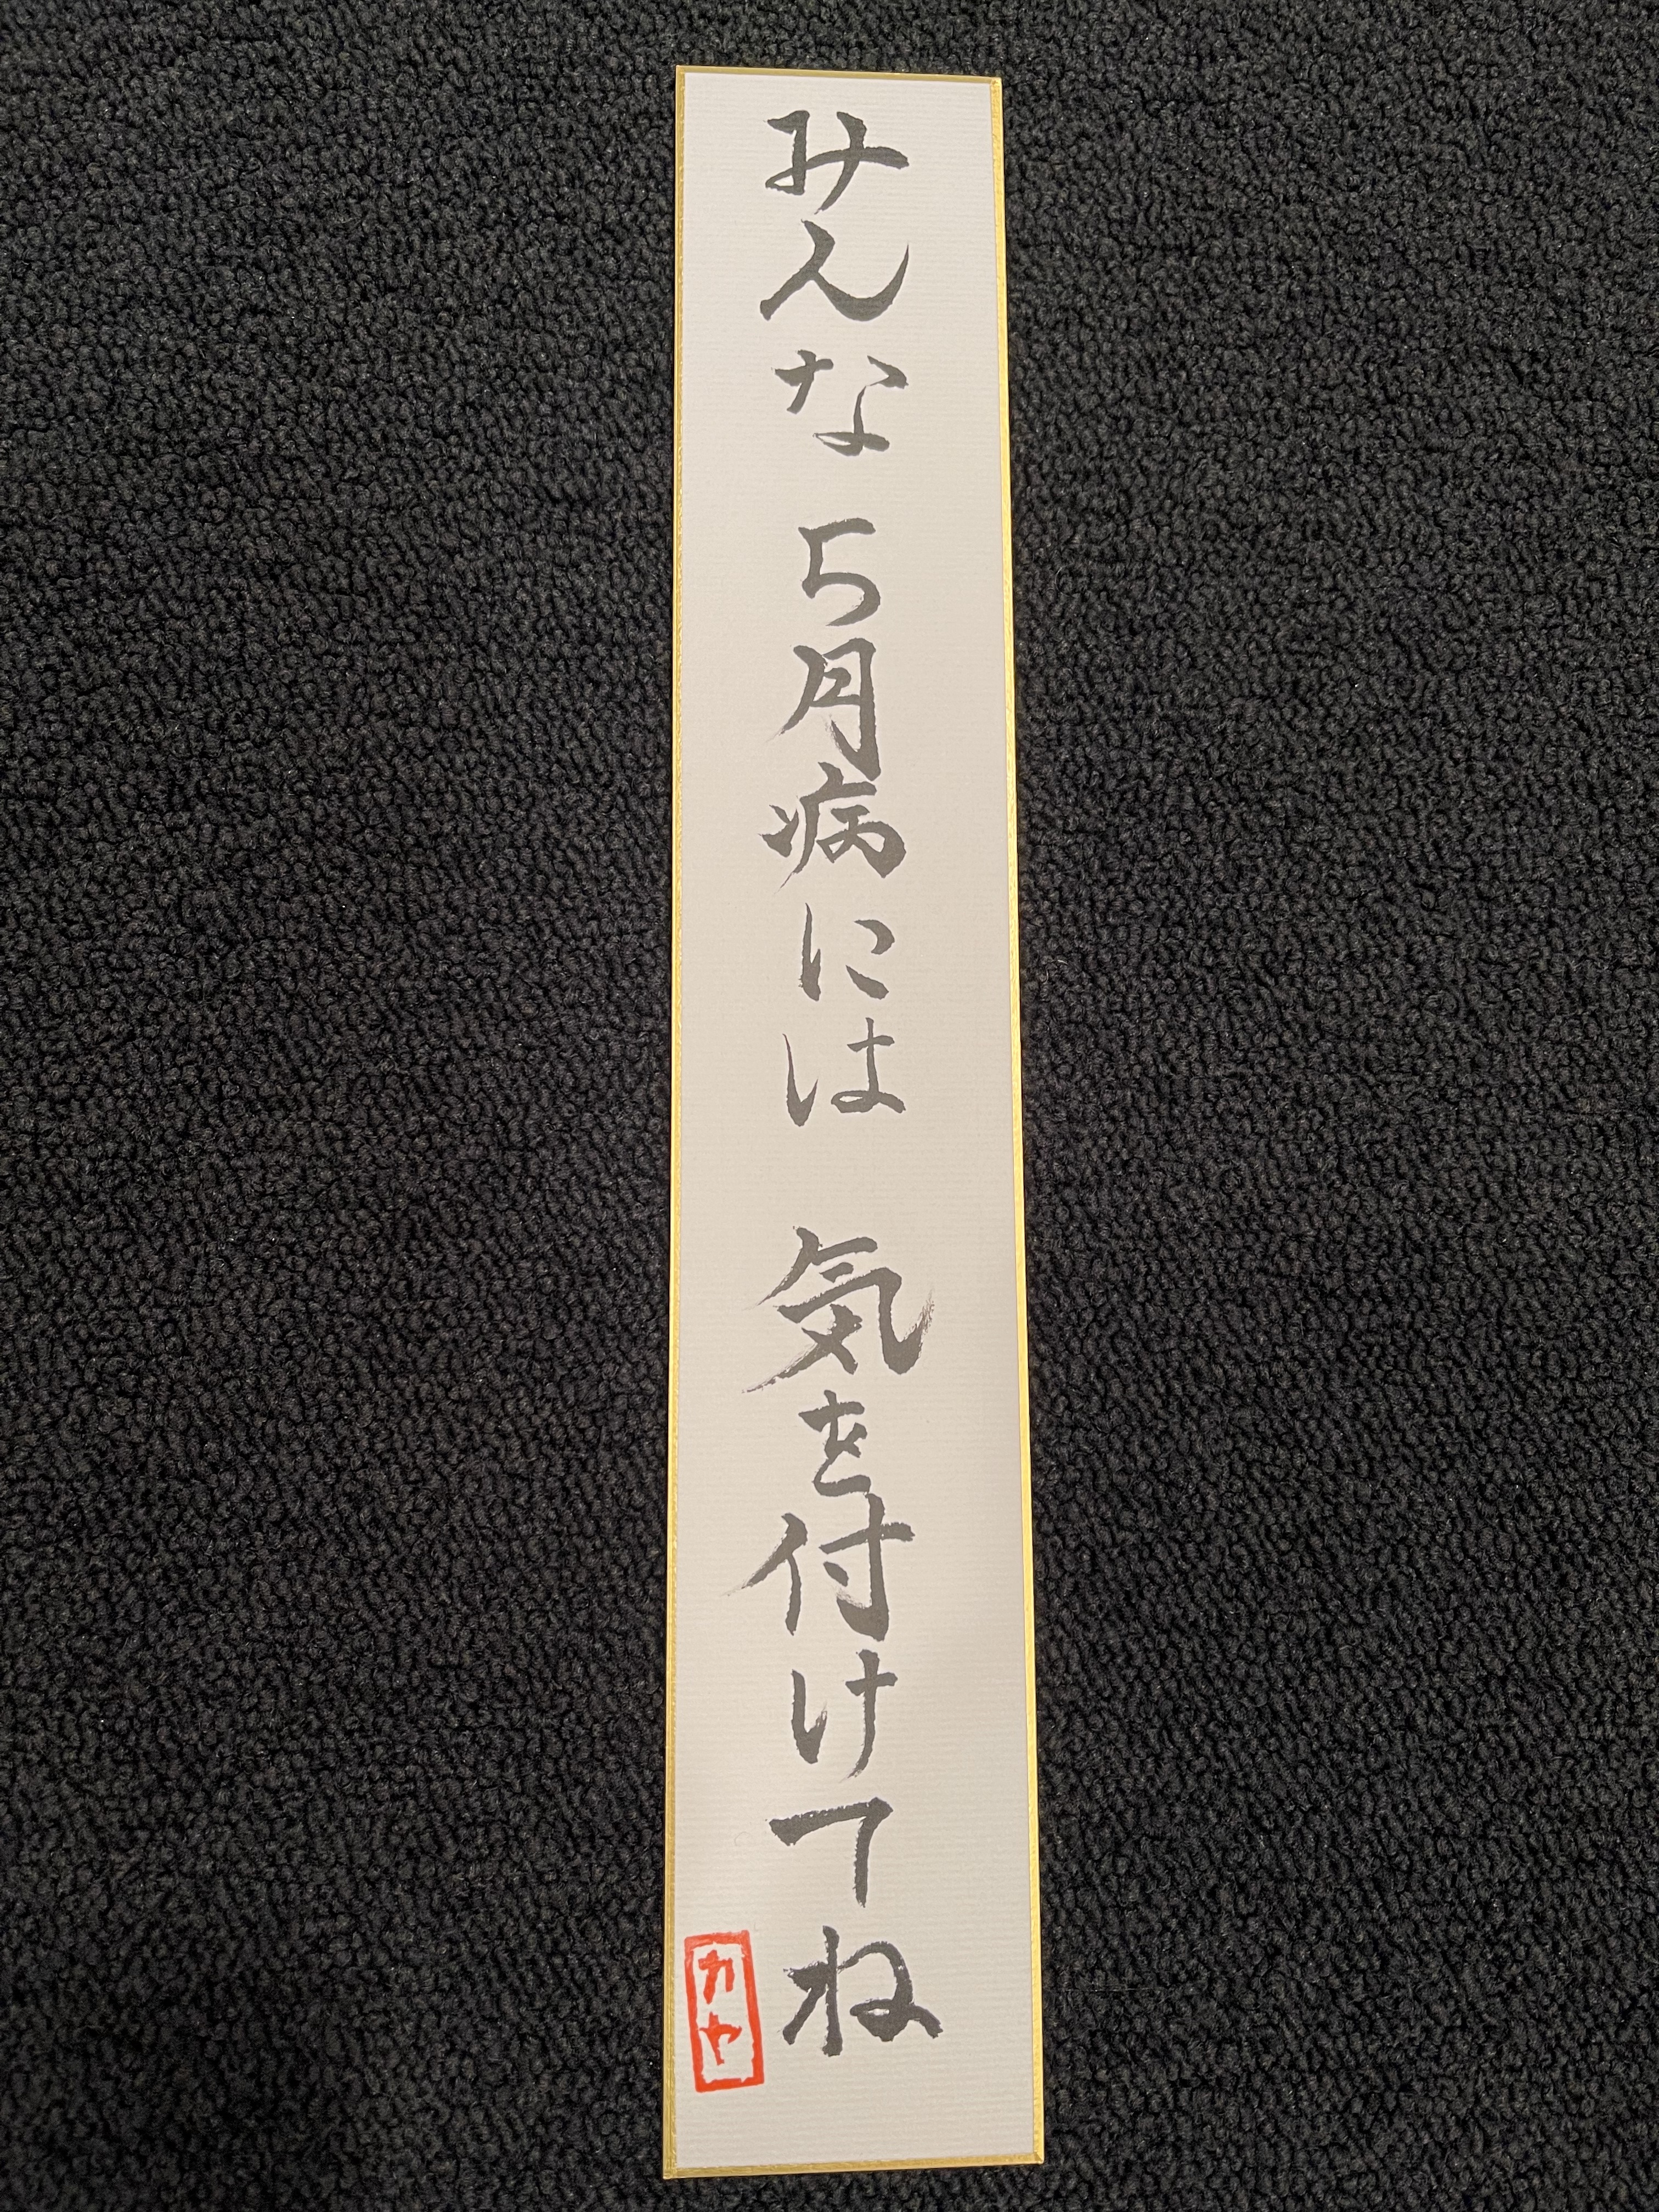 みんな 5月病には 気を付けてね
カヤ